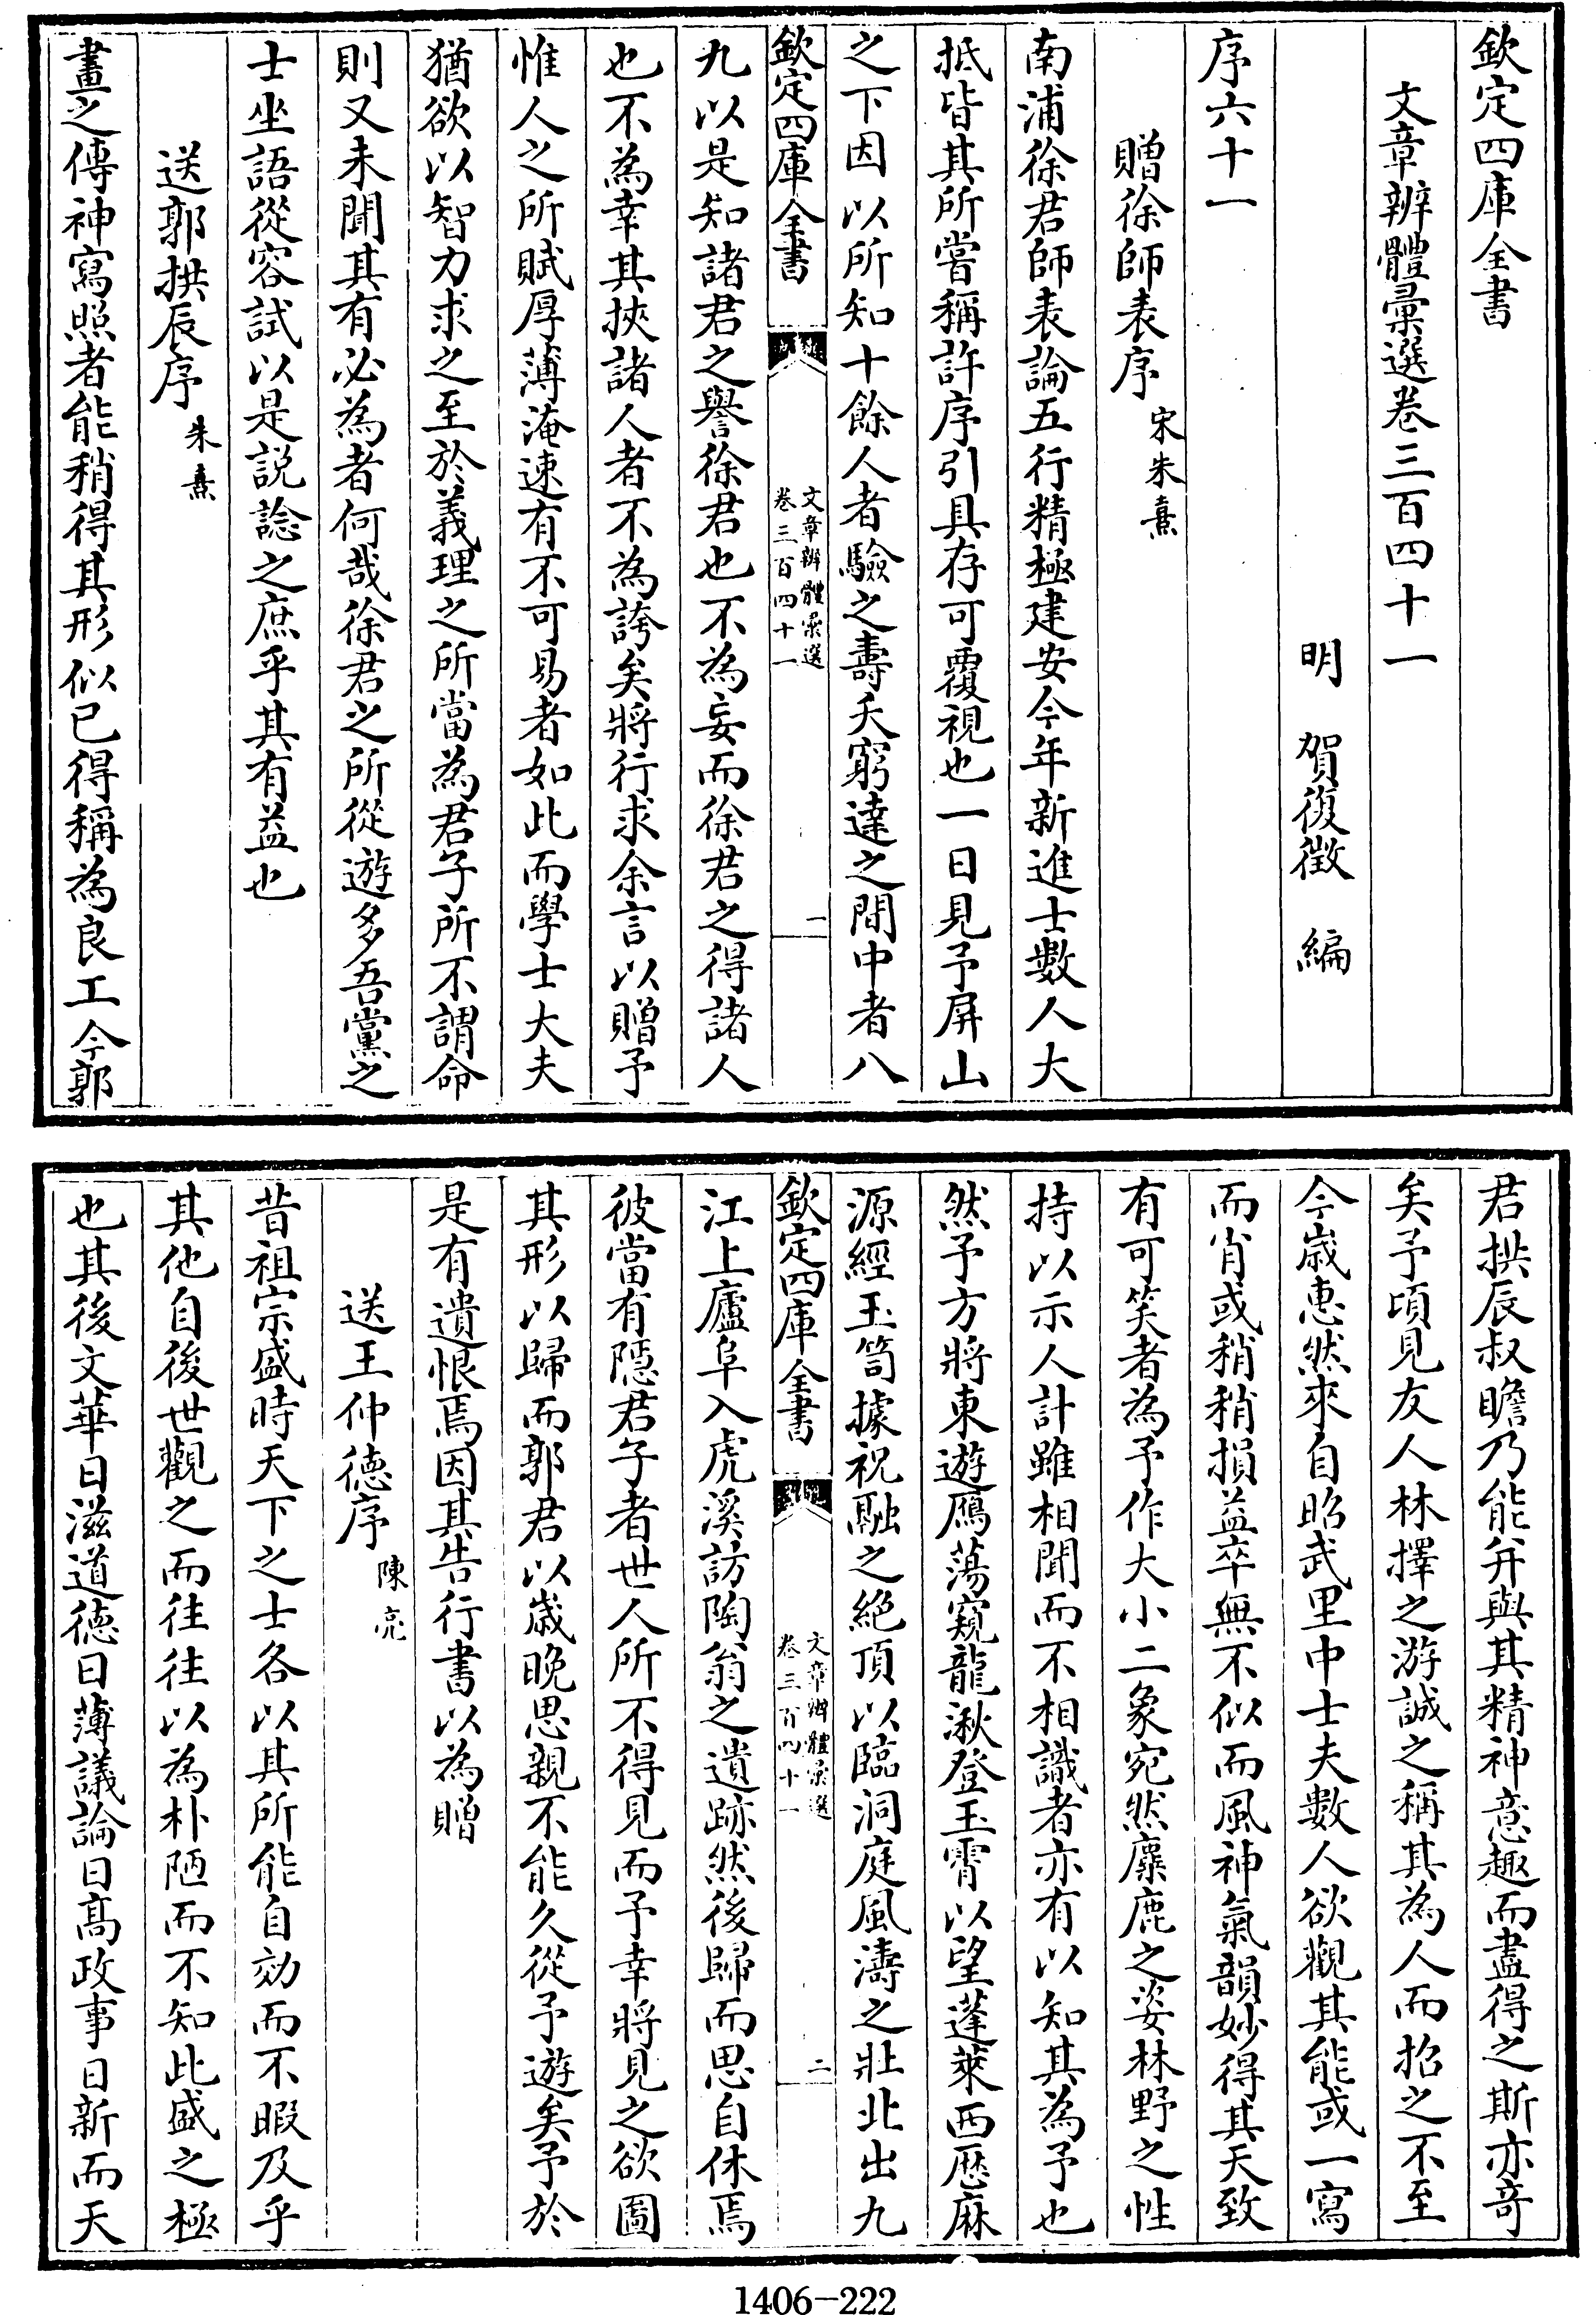 欽定四庫全書
文章辨體彙選卷三百四十一
明 賀復徵 編
序六十一
贈徐師表序 宋朱熹
南浦徐君師表論五行精極建安今年新進士數人大
抵皆其所嘗稱許序引具存可覆視也一日見予屏山
之下因以所知十餘人者驗之壽夭窮達之間中者八
欽定四庫全書 文章辨體彙選 卷三百四十一 一
九以是知諸君之譽徐君也不為妄而徐君之得諸人
也不為幸其挾諸人者不為誇矣將行求余言以贈予
惟人之所賦厚薄淹速有不可易者如此而學士大夫
猶欲以智力求之至於義理之所當為君子所不謂命
則又未聞其有必為者何哉徐君之所從遊多吾黨之
士坐語從容試以是説諗之庶乎其有益也
送郭拱辰序 朱熹
畫之傳神寫照者能稍得其形似已得稱為良工今郭
君拱辰叔瞻乃能并與其精神意趣而盡得之斯亦奇
矣予頃見友人林擇之游誠之稱其為人而招之不至
今歳惠然來自昭武里中士夫數人欲觀其能或一寫
而肖或稍稍損益卒無不似而風神氣韻妙得其天致
有可笑者為予作大小二象宛然麋鹿之姿林野之性
持以示人計雖相聞而不相識者亦有以知其為予也
然予方將東遊鴈蕩窺龍湫登玉霄以望蓬萊西歴麻
源經玉笥據祝融之絶頂以臨洞庭風濤之壯北出九
欽定四庫全書 文章辨體彙選 卷三百四十一 二
江上廬阜入虎溪訪陶翁之遺跡然後歸而思自休焉
彼當有隱君子者世人所不得見而予幸將見之欲圖
其形以歸而郭君以歳晚思親不能久從予遊矣予於
是有遺恨焉因其告行書以為贈
送王仲德序 陳亮
昔祖宗盛時天下之士各以其所能自効而不暇及乎
其他自後世觀之而往往以為朴陋而不知此盛之極
也其後文華日滋道德日薄議論日高政事日新而天
1406-222